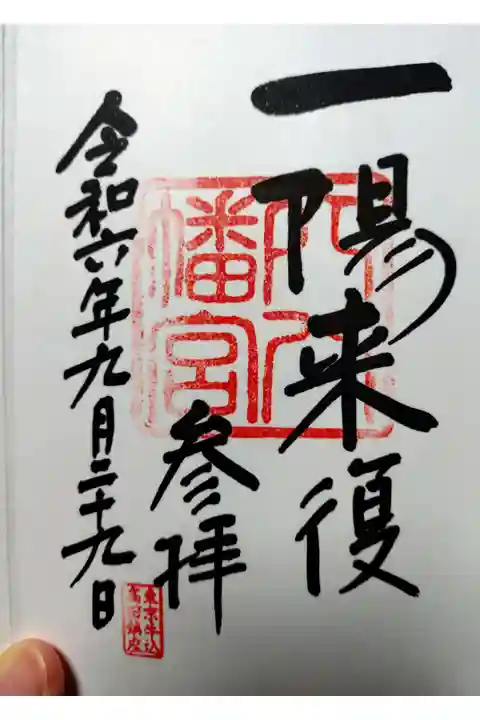 一陽来復
参拝
令和六年九月二十九日